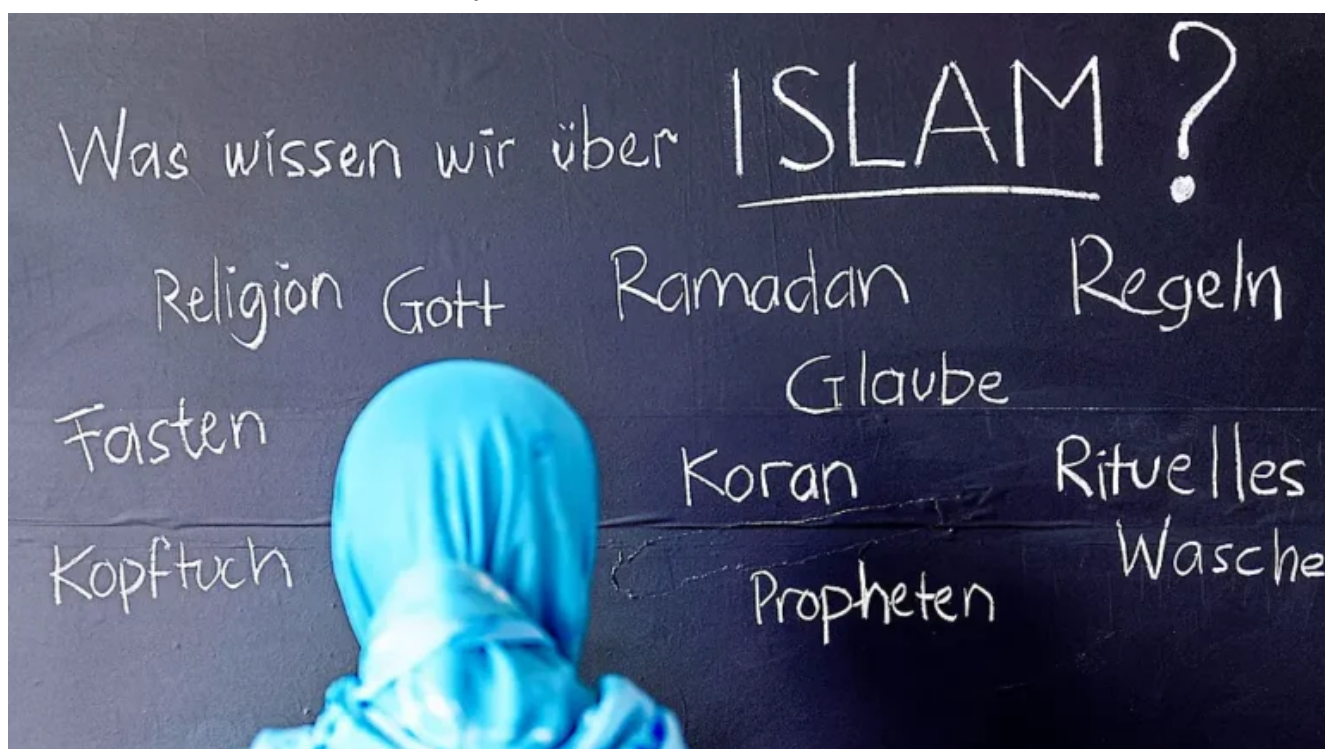 Was wissen wir über ISLAM?
Religion Gott Ramadan Regeln
Glaube
Fasten
Koran Rituelles
Kopftuch Wasche
Propheten